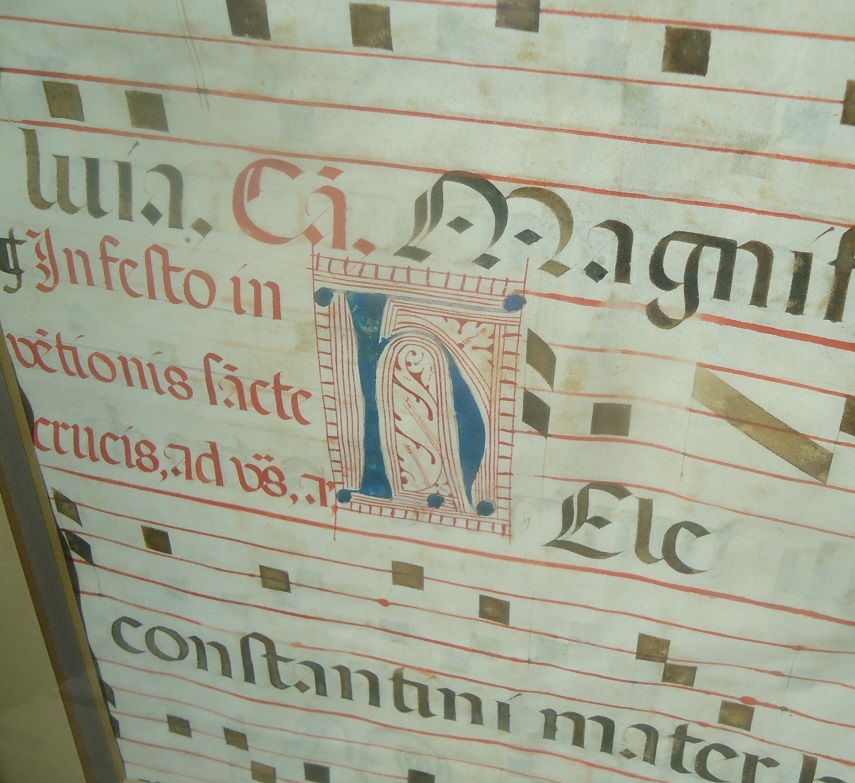 luia. Cā. Magnif
In festo in
vētionis sācte
crucis, ad vs̄, a
h Elc
constantini mater h